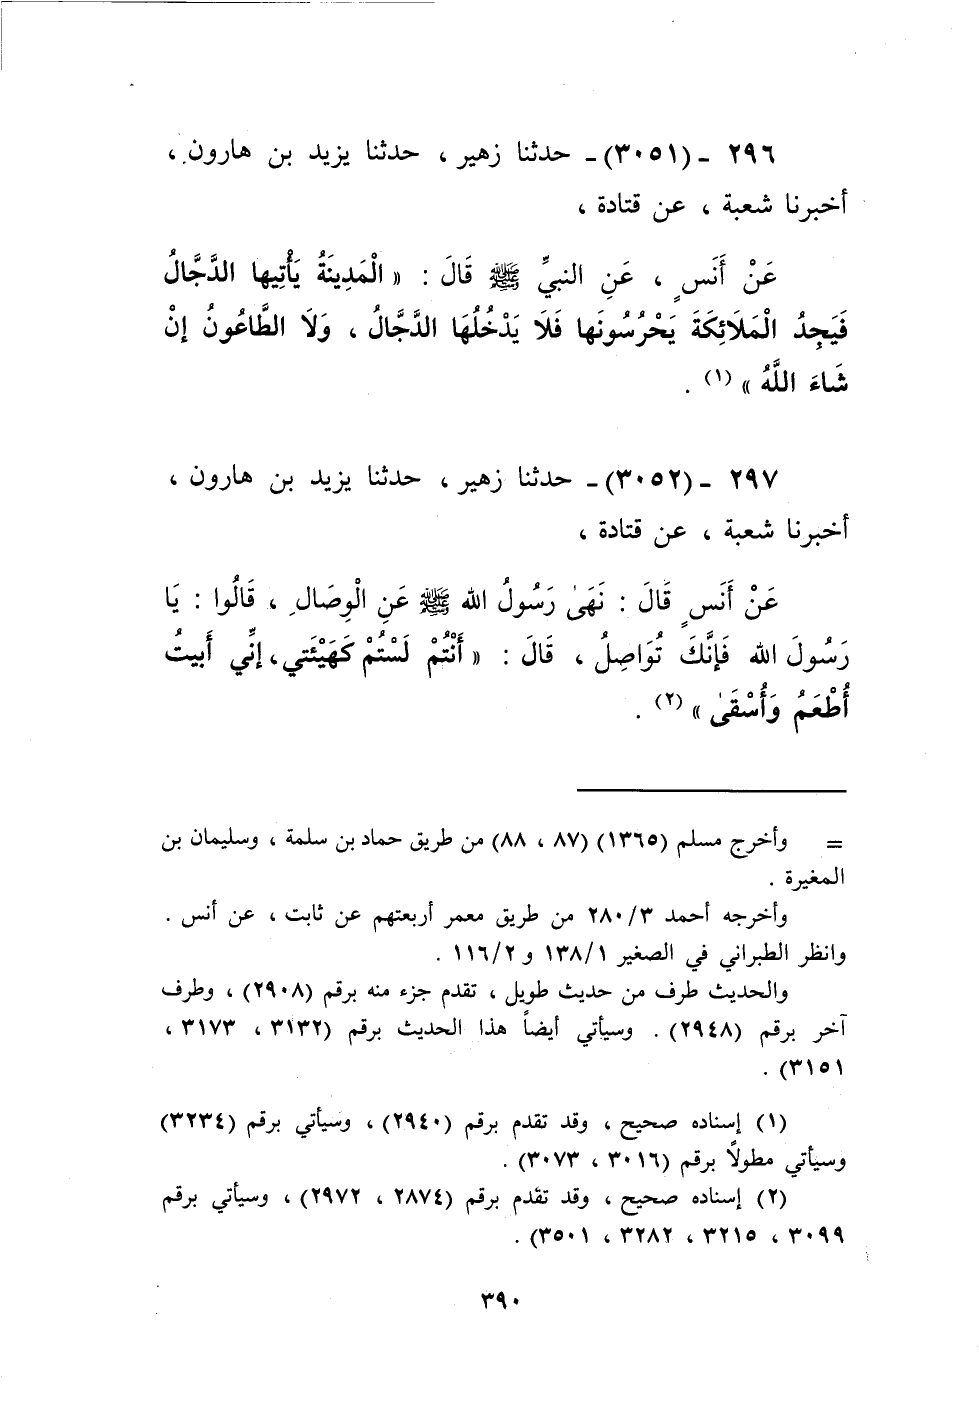 ٢٩٦ - (٣٠٥١) - حدثنا زهير ، حدثنا يزيد بن هارون ،
أخبرنا شعبة ، عن قتادة ،
عَنْ أَنَسٍ ، عَنِ النبيِّ ﷺ قَالَ : « الْمَدِينَةُ يَأْتِيها الدَّجَّالُ
فَيَجِدُ الْمَلَائِكَةَ يَحْرُسُونَها فَلَا يَدْخُلُهَا الدَّجَّالُ ، وَلَا الطَّاعُونُ إنْ
شَاءَ اللَّهُ » (١) .
٢٩٧ - (٣٠٥٢) - حدثنا زهير ، حدثنا يزيد بن هارون ،
أخبرنا شعبة ، عن قتادة ،
عَنْ أَنَسٍ قَالَ : نَهَىٰ رَسُولُ الله ﷺ عَنِ الْوِصَالِ ، قَالُوا : يَا
رَسُولَ الله فَإِنَّكَ تُوَاصِلُ ، قَالَ : « أَنْتُمْ لَسْتُمْ كَهَيْئَتي، إنِّي أَبيتُ
أُطْعَمُ وَأُسْقَىٰ » (٢) .
= وأخرج مسلم (١٣٦٥) (٨٧ ، ٨٨) من طريق حماد بن سلمة ، وسليمان بن
المغيرة .
وأخرجه أحمد ٣/ ٢٨٠ من طريق معمر أربعتهم عن ثابت ، عن أنس .
وانظر الطبراني في الصغير ١/ ١٣٨ و ٢/ ١١٦ .
والحديث طرف من حديث طويل ، تقدم جزء منه برقم (٢٩٠٨) ، وطرف
آخر برقم (٢٩٤٨) . وسيأتي أيضاً هذا الحديث برقم (٣١٣٢ ، ٣١٧٣ ،
٣١٥١) .
(١) إسناده صحيح ، وقد تقدم برقم (٢٩٤٠) ، وسيأتي برقم (٣٢٣٤)
وسيأتي مطولاً برقم (٣٠١٦ ، ٣٠٧٣) .
(٢) إسناده صحيح ، وقد تقدم برقم (٢٨٧٤ ، ٢٩٧٢) ، وسيأتي برقم
٣٠٩٩ ، ٣٢١٥ ، ٣٢٨٢ ، ٣٥٠١) .
٣٩٠